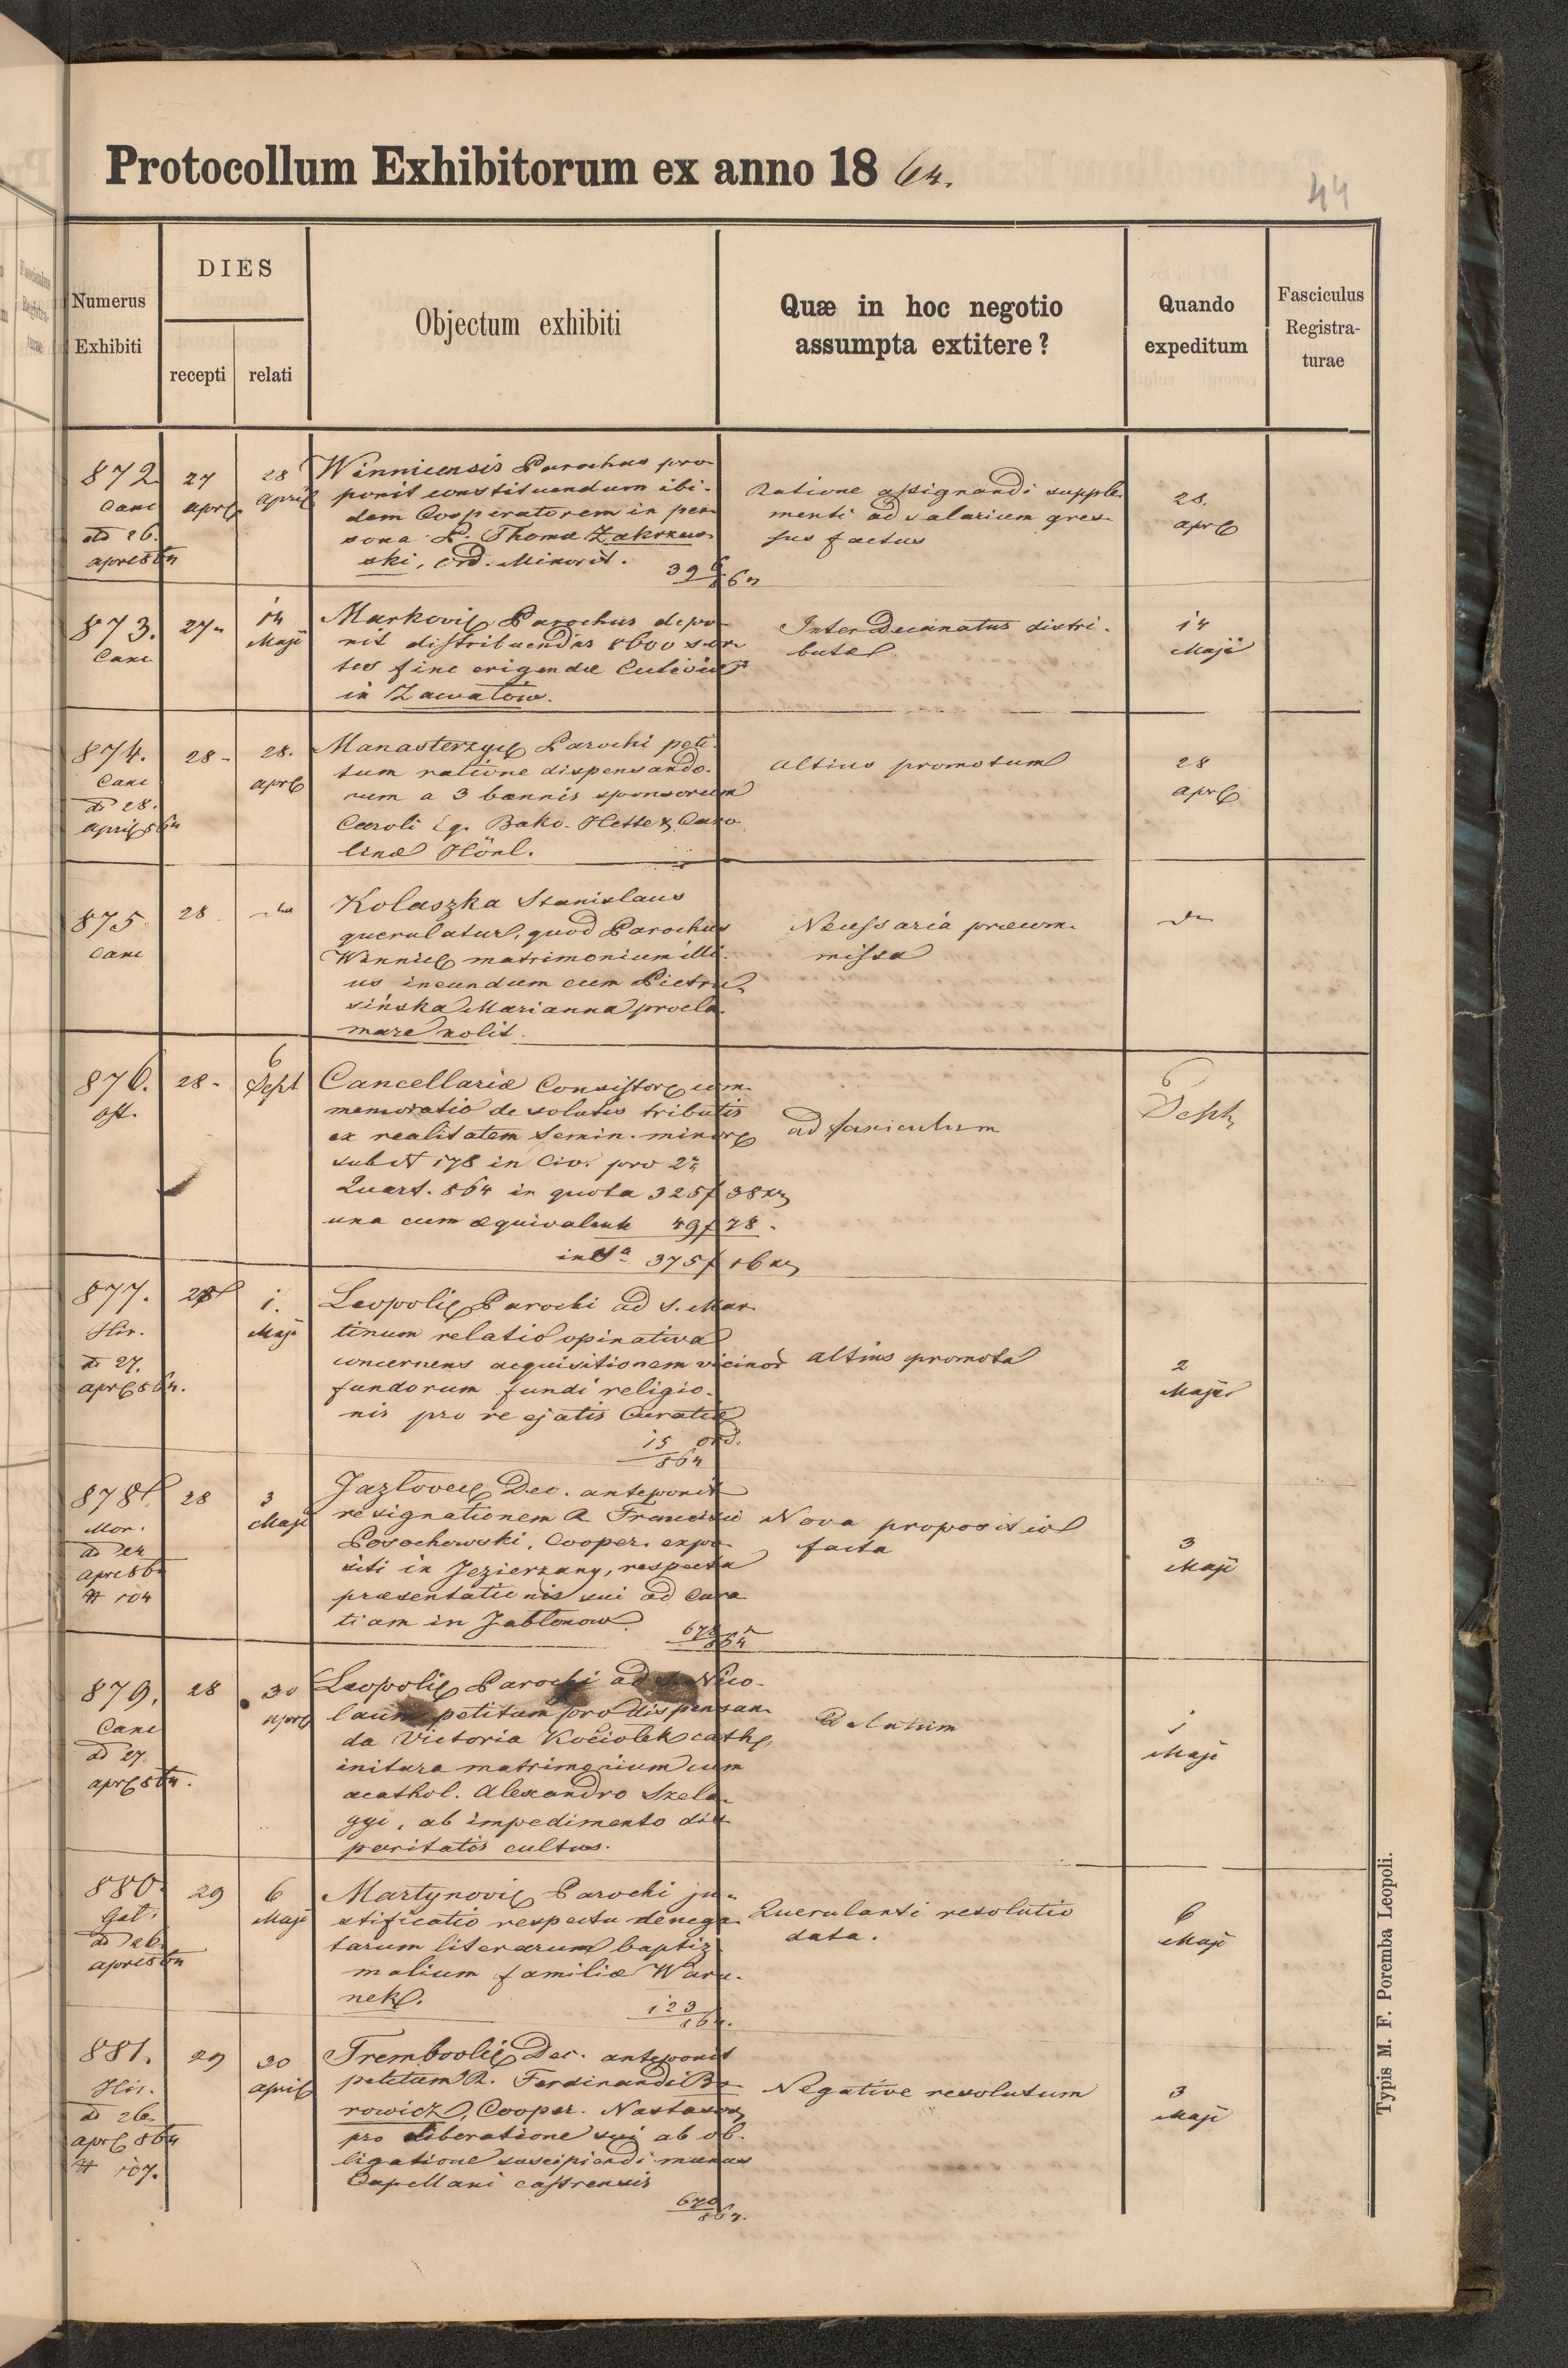 Protocollum Exhibitorum ex anno 18 64.
44
Numerus Exhibiti
DIES
recepti
relati
Objectum exhibiti
Quæ in hoc negotio assumpta extitere?
Quando expeditum
Fasciculus Registra-
turae
872
Canc
dto 26.
apr 864
27
apr
28
april
Winnicensis Parochus pro-
ponit constituendum ibi-
dem Cooperatorem in per-
sona P. Thomæ Zakrzew-
ski, ord. Minorit.
396
864
Ratione assignandi supple-
menti ad salarium gres-
sus factus
28.
apr
873.
Canc
27
14
Maji
Markovi Parochus depo-
nit distribuendas 8600 sor-
tes fine erigendæ
in Zawatow.
Inter Decanatus distri-
butæ
14
Maji
874.
Canc
d 28.
april 864
28
28.
apr
Manasterzyc Parochi peti-
tum ratione dispensando-
rum a 3 bannis sponsorum
Caroli Eq. Bako-Hette & Caro-
linæ Hönl.
Altius promotum
28
apr
875
Canc
28
Kolaszka Stanislaus
querulatur, quod Parochus
Winnic matrimonium illi-
us ineundum cum Pietru-
sińska Marianna procla-
mare nolit.
Necessaria præcom-
missa
876.
28
6
Sept
Cancellariæ Consistor com-
memoratio de solutis tributis
ex realitatem Semin. minor
sub N 178 in Civ. pro 2
Quart. 864 in quota 325 f 38 xr
una cum æquivalente 49 f 78
in Sa 375 f 16 xr
ad faniculum
6
Sept
877.
Hir.
d 27.
apr 864.
28
1.
Maji
Leopoli Parochi ad S. Mar-
tinum relatio opinativa
concernens acquisitionem vicinor
fundorum fundi religio-
nis pro re ejatis Curatiæ
15 ord.
864
altius promota
2
Maji
878
Mor.
ad 24
apr 864
N 104
28
3
Maji
Jazlovec Dec. anteponit
resignationem R Francisci
Posochowski, Cooper. expo-
siti in Jezierzany, respectu
præsentationis sui ad Cura-
tiam in Jabłonow.
678
864
Nova propositio
facta
3
Maji
879.
Canc
ad 27.
apr 864.
28
30
apr
Leopoli Parochi ad S. Nico-
laum petitum pro dispensan-
da Victoria Kociolek cath,
initura matrimonium cum
acathol. Alexandro Szela-
gyi, ab impedimento dis-
paritatis cultus.
Delatum
1
Maji
880.
Gal.
d 26.
apr 864
29
6
Maji
Martynovi Parochi ju-
stificatio respectu denega-
tarum literarum baptiz-
malium familiæ Waru-
nek.
123
864.
Querulanti resolutio
data.
6
Maji
881.
Hir.
d 26.
apr 864
N 107.
29
30
april
Trembooli Dec. anteponit
petitum R. Ferdinandi Bo-
rowicz, Cooper. Nastasow
pro liberatione sui ab ob-
ligatione suscipiendi munus
Capellani castrensis
670
864.
Negative resolutum
3
Maji
Typis M. F. Poremba Leopoli.